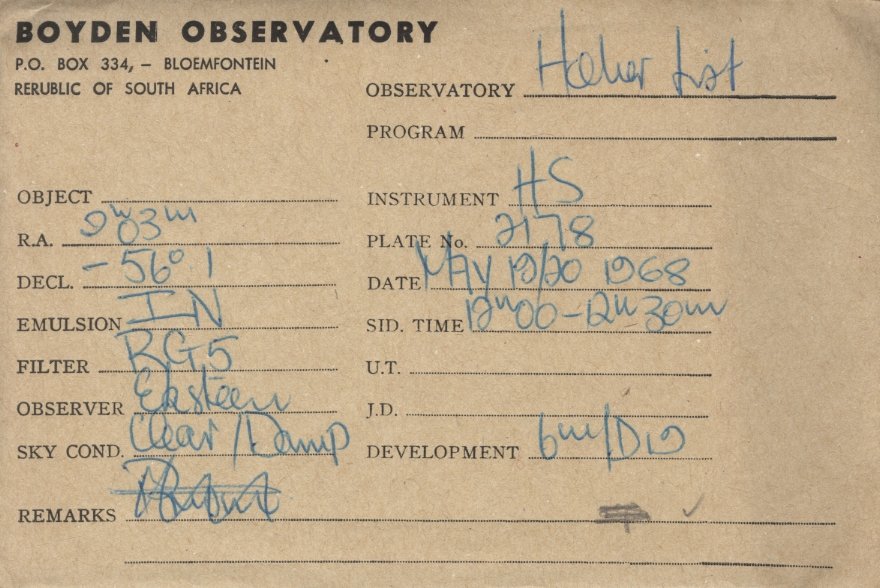 BOYDEN OBSERVATORY
P.O. BOX 334, – BLOEMFONTEIN
RERUBLIC OF SOUTH AFRICA
OBSERVATORY List
PROGRAM
OBJECT
INSTRUMENT HS
R.A. 9h 03m
PLATE No. 2178
DECL. - 56° 1
DATE May 19/20 1968
EMULSION IN
SID. TIME 12h00 - 12h 30m
FILTER RG5
U.T.
OBSERVER Eksteen
J.D.
SKY COND. Clear / Damp
DEVELOPMENT 6m/D19
REMARKS